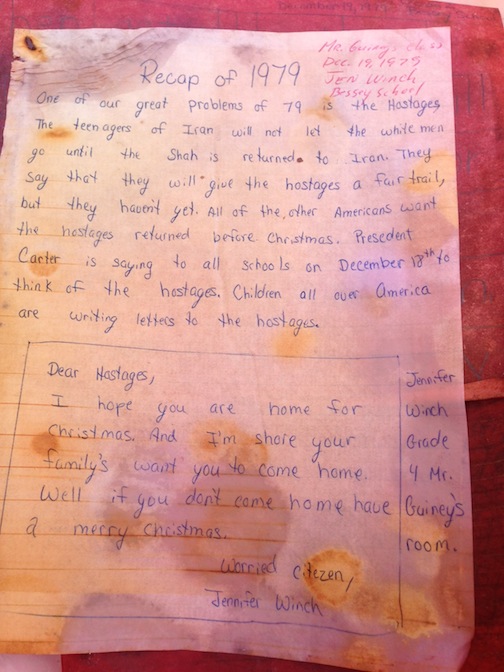 Mr. Guiney's class
Dec. 19, 1979
Jen Winch
Bessey School
Recap of 1979
One of our great problems of 79 is the Hostages
The teenagers of Iran will not let the white men
go until the Shah is returned. to Iran. They
say that they will give the hostages a fair trail,
but they haven't yet. All of the other Americans want
the hostages returned before Christmas. Presedent
Carter is saying to all schools on December 18th to
think of the hostages. Children all over America
are writing letters to the hostages.
Dear Hostages,
I hope you are home for
Christmas. And I'm shore your
family's want you to come home.
Well if you don't come home have
a merry Christmas.
Worried Citezen,
Jennifer Winch
Jennifer
Winch
Grade
4 Mr.
Guiney's
room.